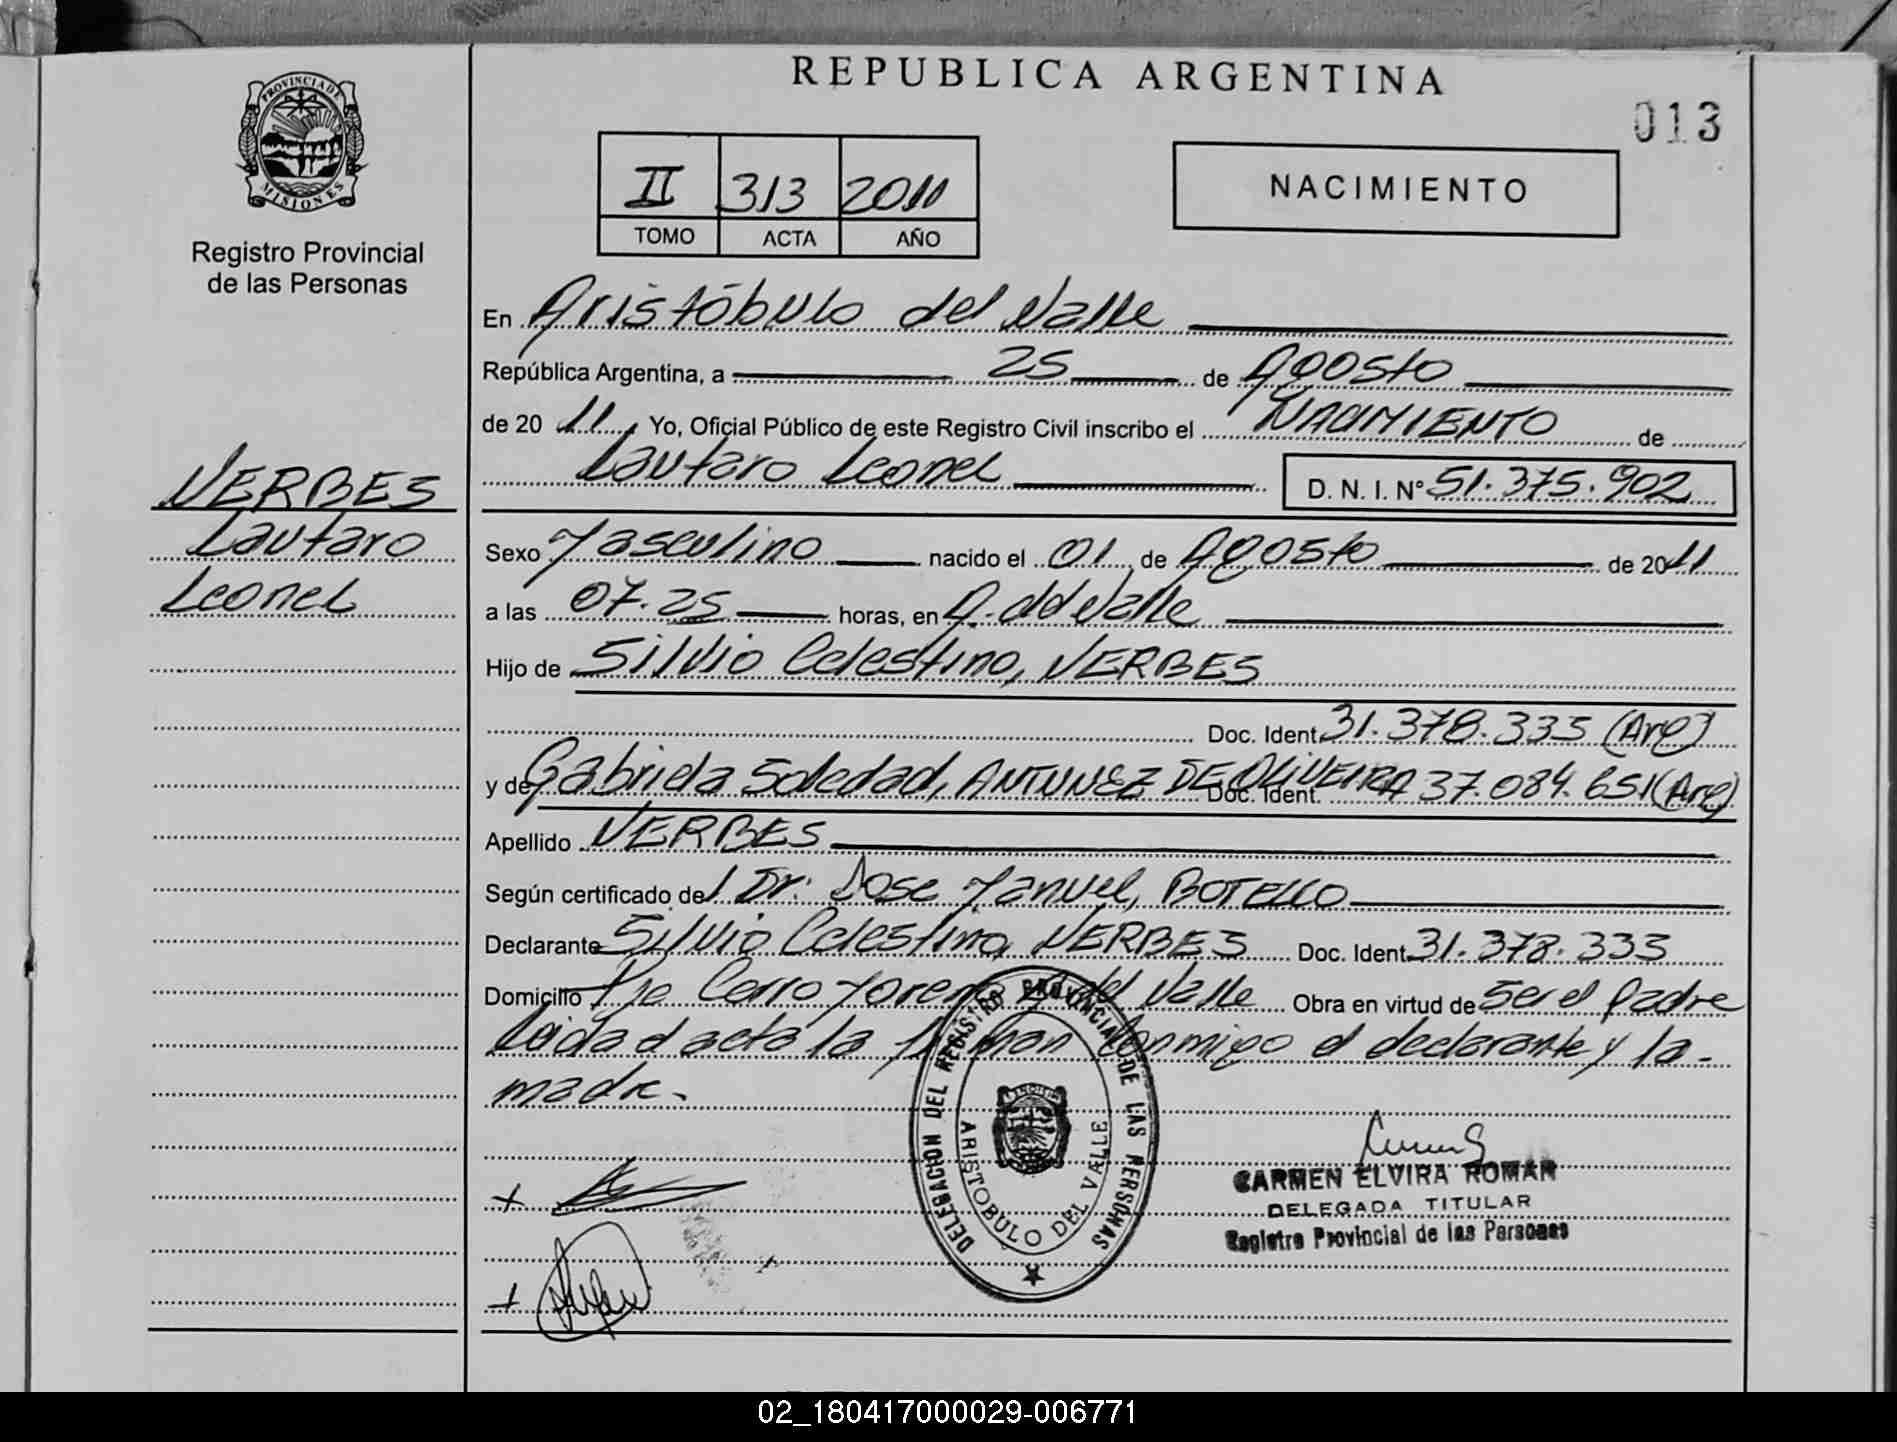 REPUBLICA ARGENTINA
013
PROVINCIA DE MISIONES
Registro Provincial
de las Personas
II 313 2011
TOMO ACTA AÑO
NACIMIENTO
VERBES
Lautaro
Leonel
En Aristóbulo del Valle
República Argentina, a 25 de Agosto
de 20 11 Yo, Oficial Público de este Registro Civil inscribo el NACIMIENTO de
Lautaro Leonel D. N. I. Nº 51.375.902
Sexo Masculino nacido el 01 de Agosto de 2011
a las 07.25 horas, en A. del Valle
Hijo de Silvio Celestino, VERBES
Doc. Ident. 31.378.335 (Arg)
y de Gabriela Soledad, ANTUNEZ DE OLIVEIRA Doc. Ident. 37.084.651 (Arg)
Apellido VERBES
Según certificado del Dr. Jose Manuel, BOTELLO
Declarante Silvio Celestino, VERBES Doc. Ident. 31.378.333
Domicilio Pje Cerro Moreno A. del Valle Obra en virtud de Ser el padre
Leida el acta la firman conmigo el declarante y la
madre.
DELEGACION DEL REGISTRO PROVINCIAL DE LAS PERSONAS
ARISTOBULO DEL VALLE
CARMEN ELVIRA ROMAN
DELEGADA TITULAR
Registro Provincial de las Personas
02_180417000029-006771